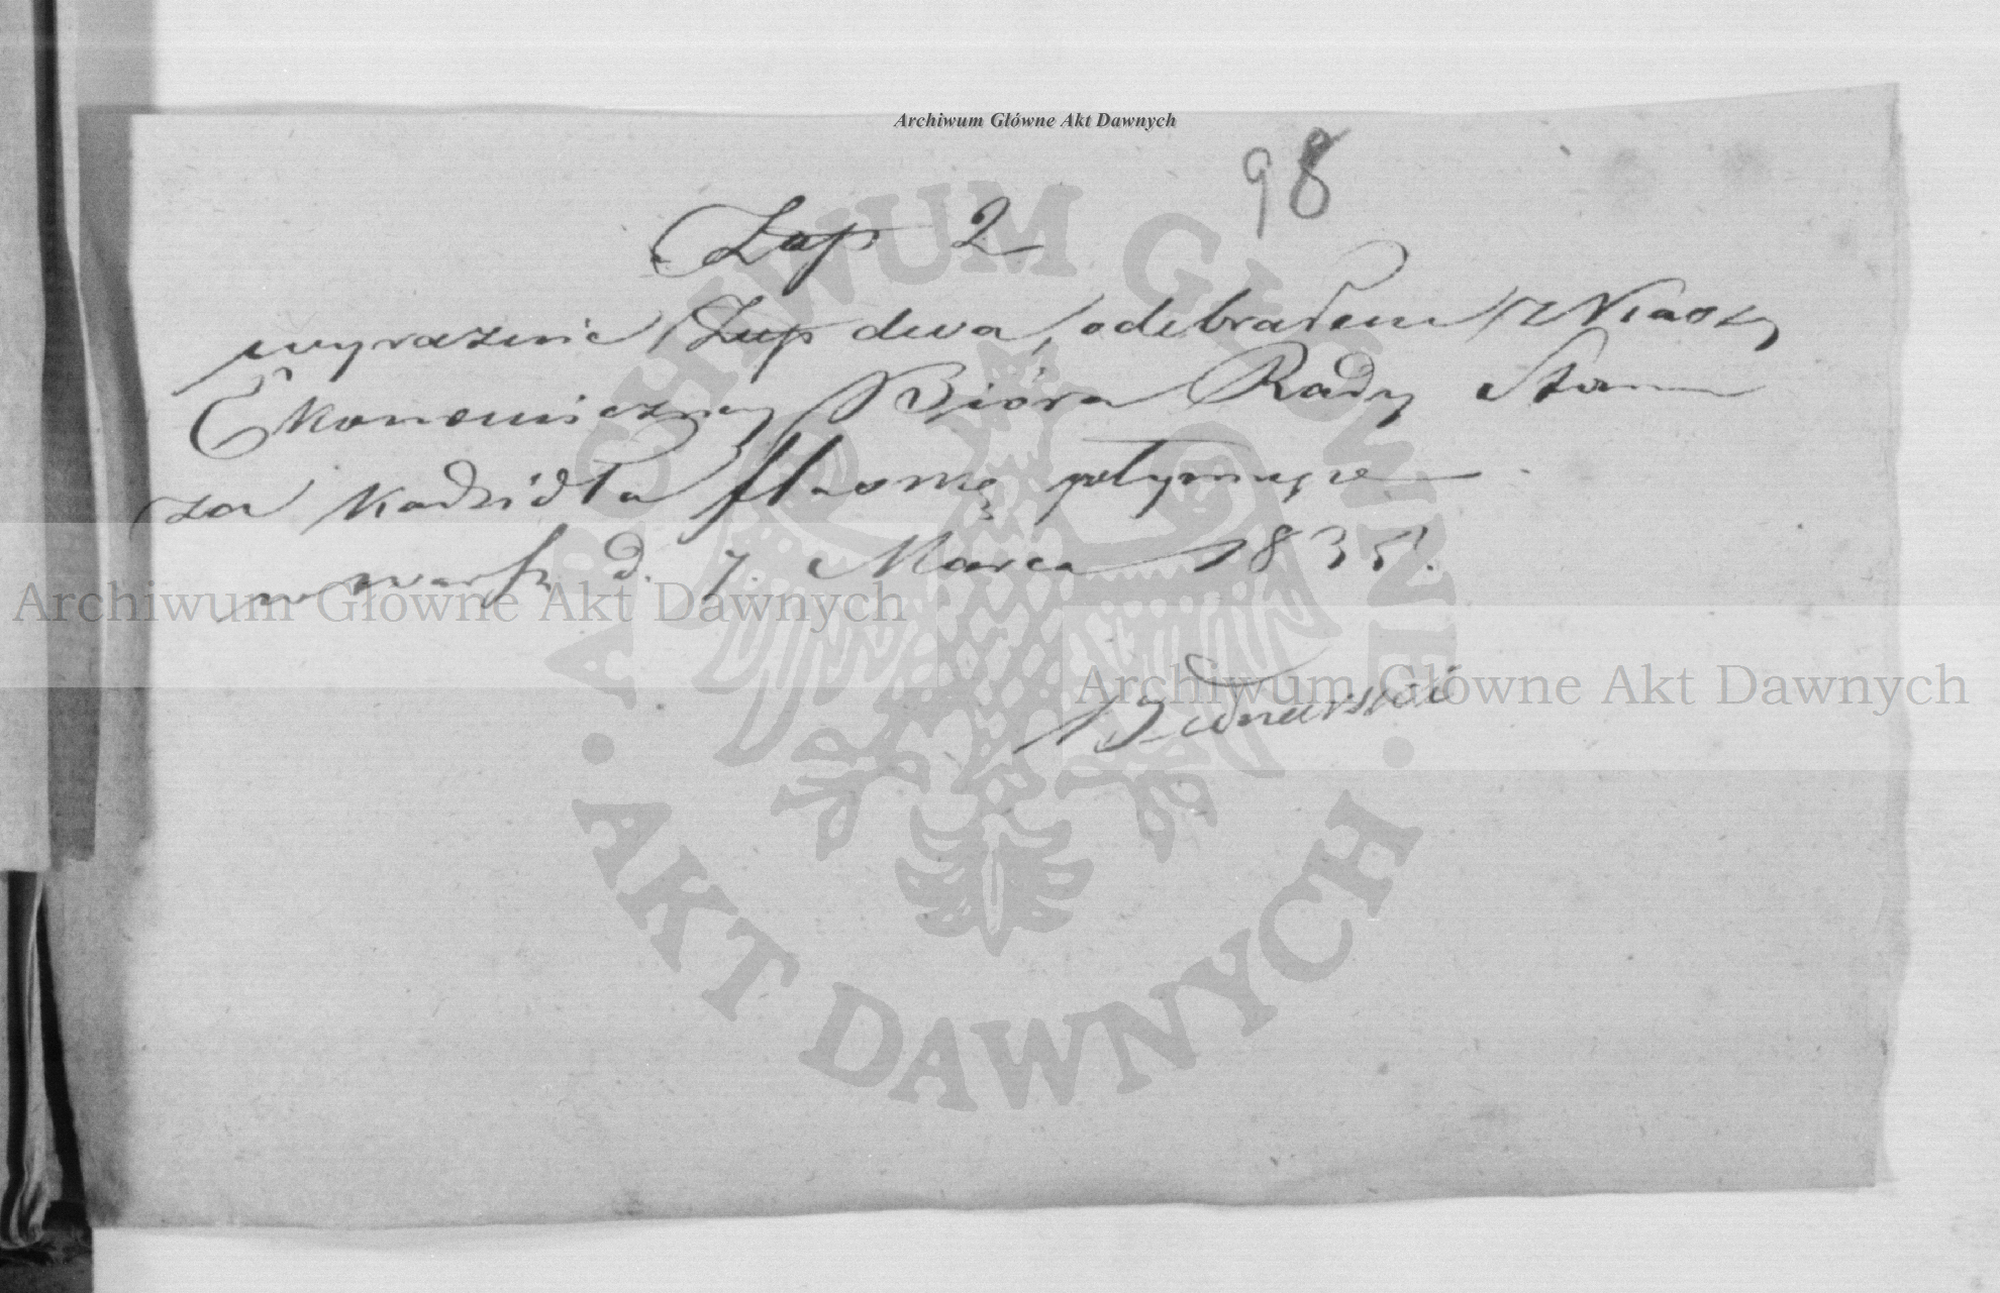 Archiwum Główne Akt Dawnych
98
Złp 2
wyraźnie Złp dwa, odebrałem z Kassy
Ekonomiczney Bióra Rady Stanu
za kadzidła flaszkę płynnego
w Warsz d. 7. Marca 1835.
Archiwum Główne Akt Dawnych
Archiwum Główne Akt Dawnych
Bednarski
ARCHIWUM GŁÓWNE
AKT DAWNYCH